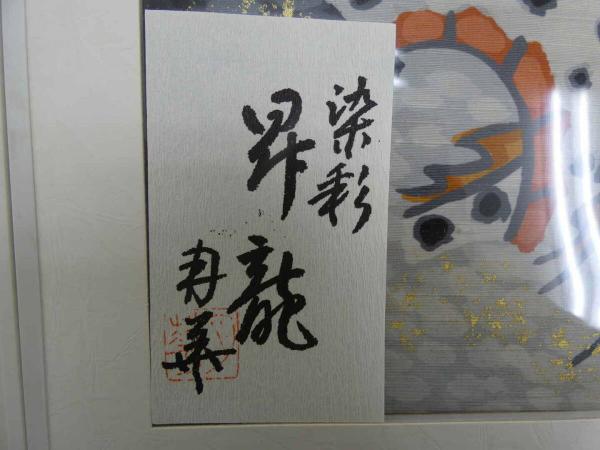 染彩
昇龍
寿華